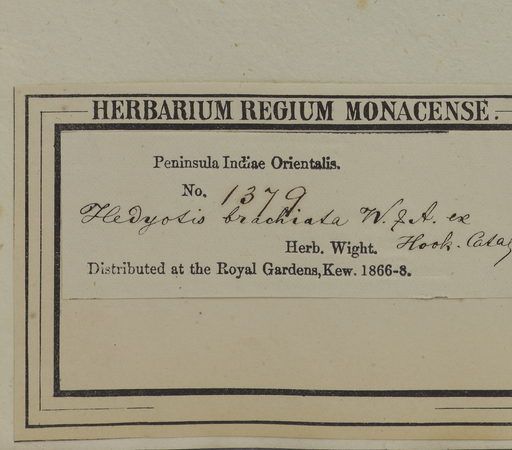 HERBARIUM REGIUM MONACENSE.
Peninsula Indiae Orientalis.
No. 1379
Hedyotis brachiata W. & A. ex
Herb. Wight. Hook. Catal
Distributed at the Royal Gardens, Kew. 1866-8.